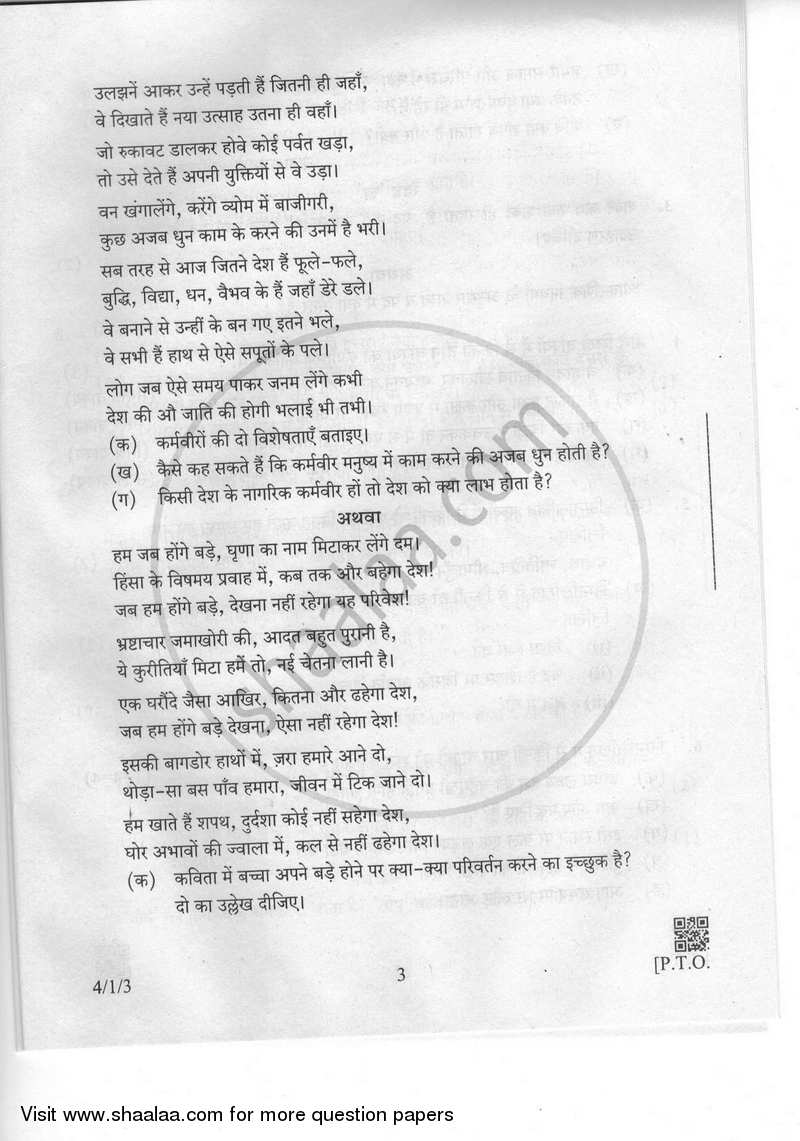 उलझनें आकर उन्हें पड़ती हैं जितनी ही जहाँ,
वे दिखाते हैं नया उत्साह उतना ही वहाँ।
जो रुकावट डालकर होवे कोई पर्वत खड़ा,
तो उसे देते हैं अपनी युक्तियों से वे उड़ा।
वन खंगालेंगे, करेंगे व्योम में बाजीगरी,
कुछ अजब धुन काम के करने की उनमें है भरी।
सब तरह से आज जितने देश हैं फूले-फले,
बुद्धि, विद्या, धन, वैभव के हैं जहाँ डेरे डले।
वे बनाने से उन्हीं के बन गए इतने भले,
वे सभी हैं हाथ से ऐसे सपूतों के पले।
लोग जब ऐसे समय पाकर जनम लेंगे कभी
देश की औ जाति की होगी भलाई भी तभी।
(क) कर्मवीरों की दो विशेषताएँ बताइए।
(ख) कैसे कह सकते हैं कि कर्मवीर मनुष्य में काम करने की अजब धुन होती है?
(ग) किसी देश के नागरिक कर्मवीर हों तो देश को क्या लाभ होता है?
अथवा
हम जब होंगे बड़े, घृणा का नाम मिटाकर लेंगे दम।
हिंसा के विषमय प्रवाह में, कब तक और बहेगा देश!
जब हम होंगे बड़े, देखना नहीं रहेगा यह परिवेश!
भ्रष्टाचार जमाखोरी की, आदत बहुत पुरानी है,
ये कुरीतियाँ मिटा हमें तो, नई चेतना लानी है।
एक घरौंदे जैसा आखिर, कितना और ढहेगा देश,
जब हम होंगे बड़े देखना, ऐसा नहीं रहेगा देश!
इसकी बागडोर हाथों में, ज़रा हमारे आने दो,
थोड़ा-सा बस पाँव हमारा, जीवन में टिक जाने दो।
हम खाते हैं शपथ, दुर्दशा कोई नहीं सहेगा देश,
घोर अभावों की ज्वाला में, कल से नहीं ढहेगा देश।
(क) कविता में बच्चा अपने बड़े होने पर क्या-क्या परिवर्तन करने का इच्छुक है?
दो का उल्लेख दीजिए।
4/1/3
3
[P.T.O.
shaalaa.com
Visit www.shaalaa.com for more question papers